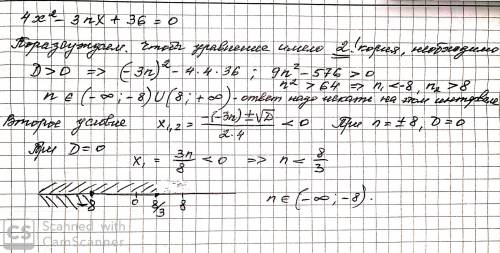 4x² - 3nx + 36 = 0
Поразсуждаем. Чтобы уравнение имело 2! корня, необходимо
D > 0 => (-3n)² - 4·4·36 ; 9n² - 576 > 0
n² > 64 => n₁ < -8, n₂ > 8
n ∈ (-∞; -8) ∪ (8; +∞) - ответ надо искать на этом интервале
Второе условие x₁,₂ = (-(-3n) ± √D)/(2·4) < 0 При n = ±8, D = 0
При D = 0
x₁ = 3n/8 < 0 => n < 8/3
-8 0 8/3 8 n ∈ (-∞; -8).
CS Scanned with
CamScanner